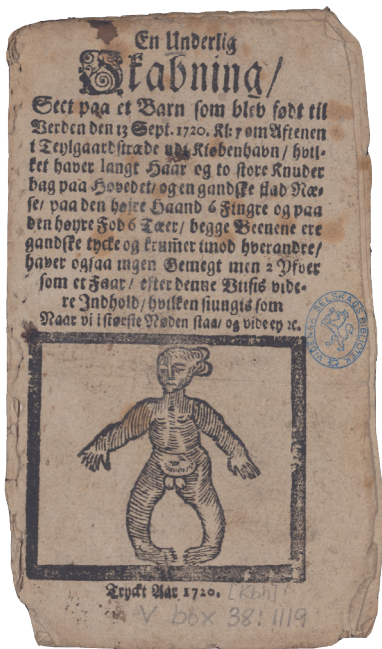 En Underlig
Skabning/
Seet paa et Barn som blev født til
Verden den 13 Sept. 1720. Kl: 7 om Aftenen
i Teylgaardstræde udi Kiøbenhavn/ hvil-
ket haver langt Haar og to store Knuder
bag paa Hovedet/ og en gandske flad Næ-
se/ paa den højre Haand 6 Fingre og paa
den høyre Fod 6 Tæer/ begge Beenene ere
gandske tycke og krum̃er imod hverandre/
haver ogsaa ingen Gemegt men 2 Yfver
som et Faar/ efter denne Viises vide-
re Indhold/ hvilken siungis som
Naar vi i største Nøden staa/ og vide ey ꝛc.
VIDENSK. SELSKABS BIBLIOTEK
Tryckt Aar 1720. [Kbh]
V box 38: 1119